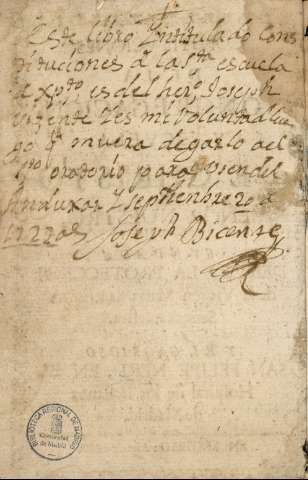 Este libro Yntitulado Cons
tituciones d la sta escuela
d xpto es del hero Joseph
Vizente Y es mi Voluntad lu
go q muera degarlo a el
sto oratorio para Vso en del
Anduxar Y Septhenbre 20 d
1722 as Joseph Bicente
BIBLIOTECA REGIONAL DE MADRID
Comunidad
de Madrid